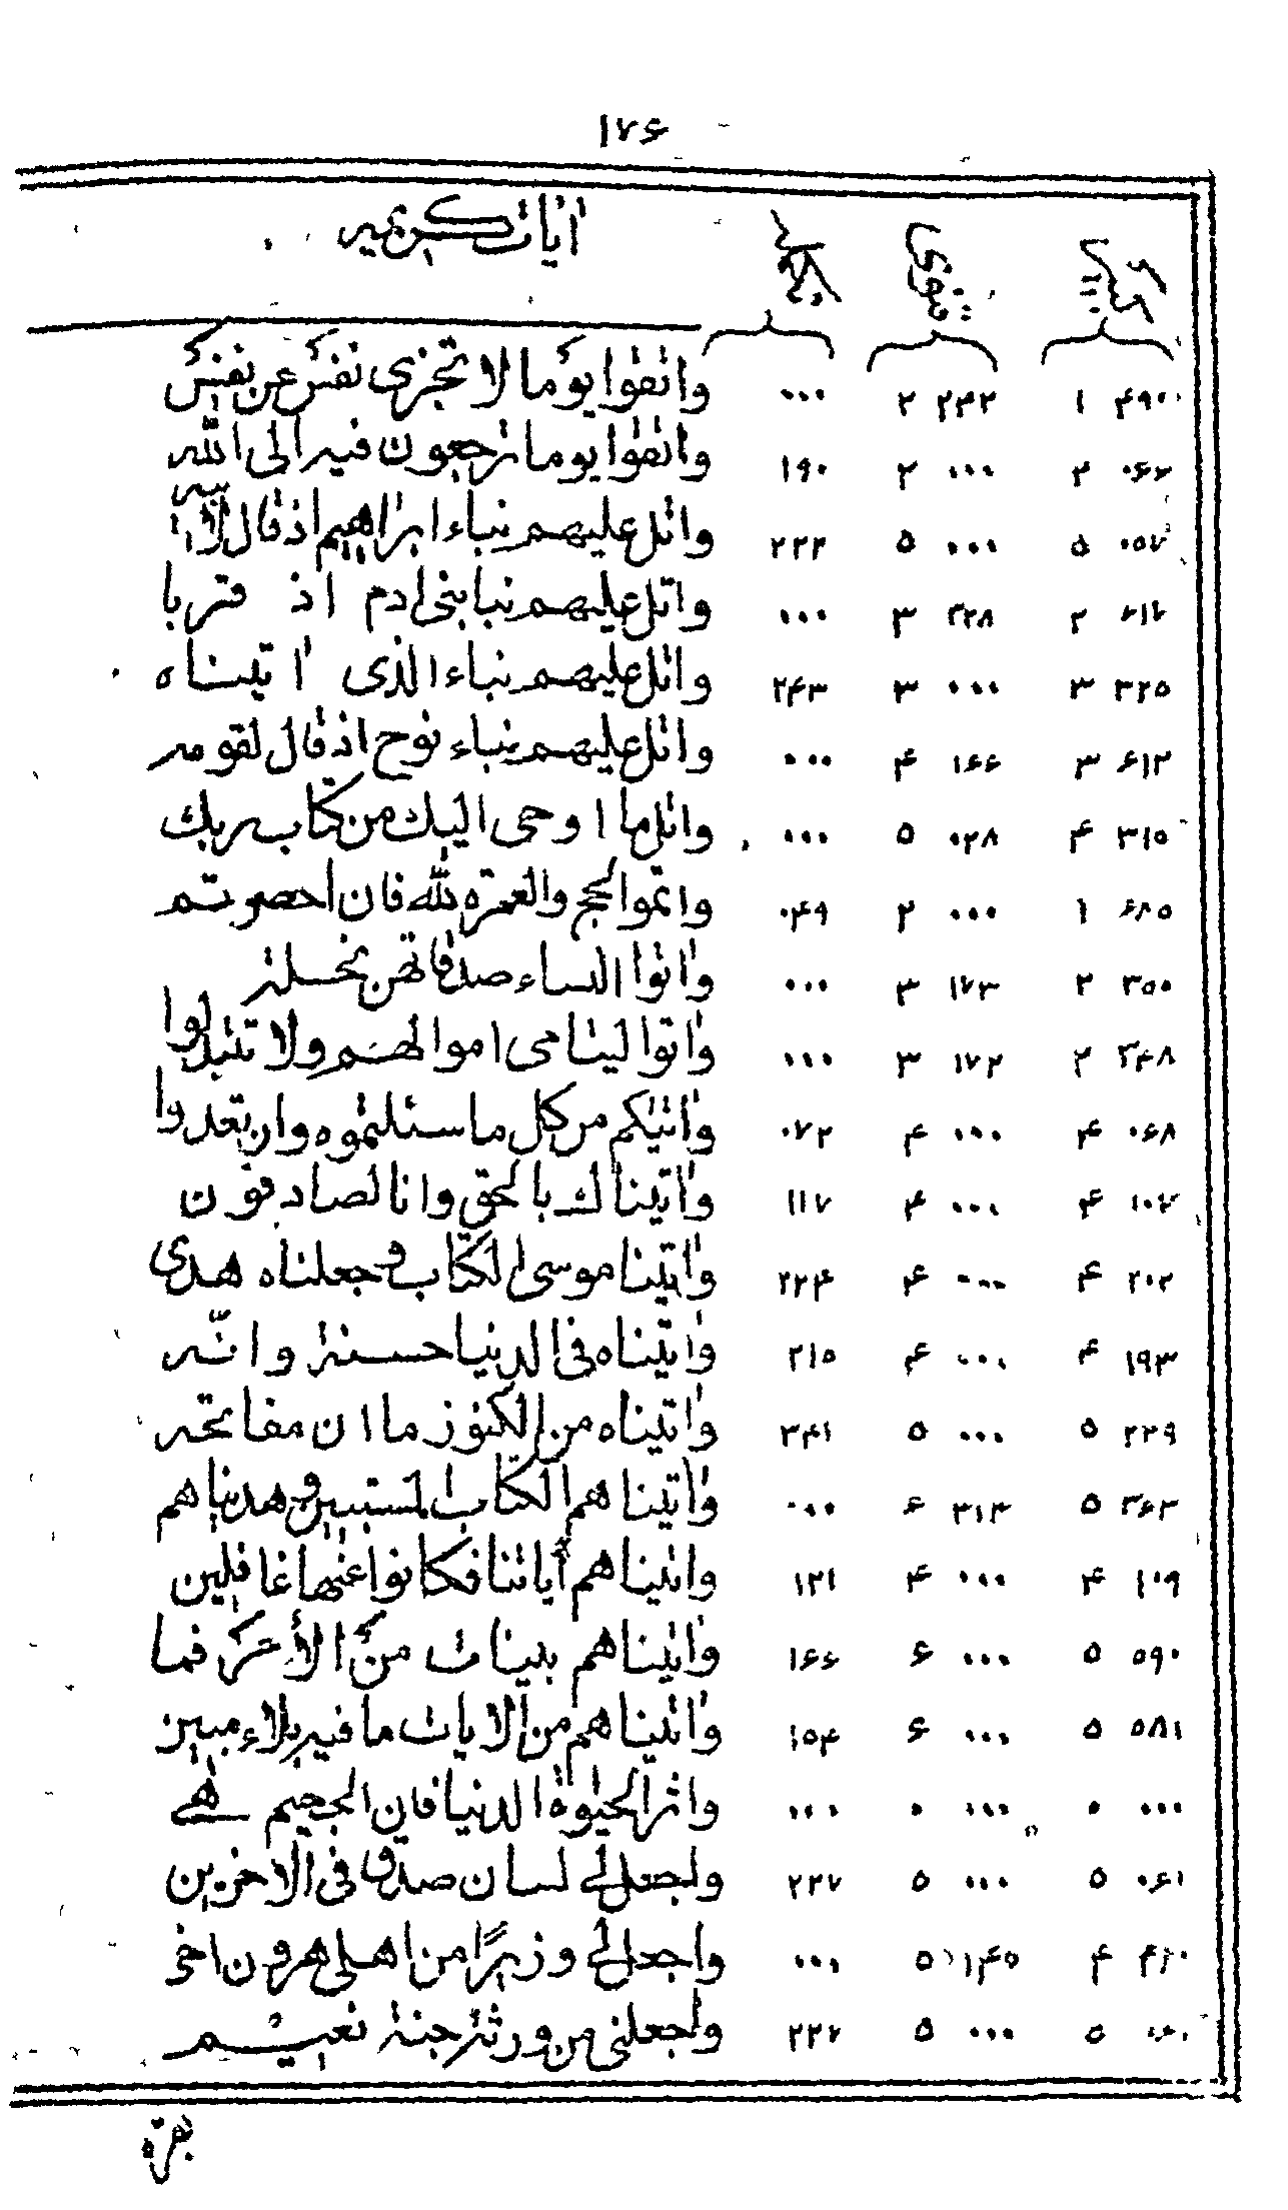 ١٧۶
اٰيات كريميه
واتقوا يوما لا تجزى نفس عن نفس ٠٠٠ ٢ ١
واتقوا يوما ترجعون فيه الى الله ١٩٠ ٢ ٠٠٠ ٢
واتل عليهم نباء ابراهيم اذ قال لابيه ٢٢٣ ٥ ٠٠٠ ٥ ٠٥٧
واتل عليهم نبا بنى ادم اذ قربا ٠٠٠ ٣ ٢ ۶١٧
واتل عليهم نباء الذى اٰتيناه ٢۴٣ ٣ ٠٠٠ ٣ ٣٢٥
واتل عليهم نباء نوح اذ قال لقومه ٠٠٠ ۴ ١۶۶ ٣ ۶١٢
واتل ما اوحى اليك من كتاب ربك ٠٠٠ ٥ ٠٢٨ ۴ ٣١٥
واتموا الحج والعمرة لله فان احصرتم ٠۴٩ ٢ ٠٠٠ ١ ۶٨٥
واٰتوا النساء صدقاتهن نحلة ٠٠٠ ٣ ١٧٣ ٢ ٣٥٠
واٰتوا ليتامى اموالهم ولا تتبدلوا ٠٠٠ ٣ ١٧٢ ٢ ٣۴٨
واٰتيكم من كل ما سئلتموه وان تعدوا ٠٧٢ ۴ ٠٠٠ ۴ ٠۶٨
واٰتيناك بالحق وانا لصادقون ١١٧ ۴ ٠٠٠ ۴ ١٠٧
واٰتينا موسى الكتاب وجعلناه هدى ٢٢۴ ۴ ٠٠٠ ۴ ٢٠٢
واٰتيناه فى الدنيا حسنة وانّه ٢١٥ ۴ ٠٠٠ ۴ ١٩٣
واٰتيناه من الكنوز ما ان مفاتحه ٣۴١ ٥ ٠٠٠ ٥ ٢٣٩
واٰتيناهم الكتاب المستبين وهديناهم ٠٠٠ ۶ ٣١٣ ٥ ٣۶٣
واٰتيناهم اٰياتنا فكانوا عنها غافلين ١٢١ ۴ ٠٠٠ ۴ ١٠٩
واٰتيناهم بينات من الأمر فما ١۶۶ ۶ ٠٠٠ ٥ ٥٩٠
واٰتيناهم من الايات ما فيه بلاء مبين ١٥۴ ۶ ٠٠٠ ٥ ٥٨١
واثر الحيٰوة الدنيا فان الجحيم هى ٠٠٠ ٠ ٠٠٠ ٠ ٠٠٠
واجعل لى لسان صدق فى الاخرين ٢٣٧ ٥ ٠٠٠ ٥ ٠۶١
واجعل لى وزيرًا من اهلى هرون اخى ٠٠٠ ٥ ١۴٥ ۴
واجعلنى من ورثة جنة نعيم ٢٣٧ ٥ ٠٠٠ ٥
بقرة